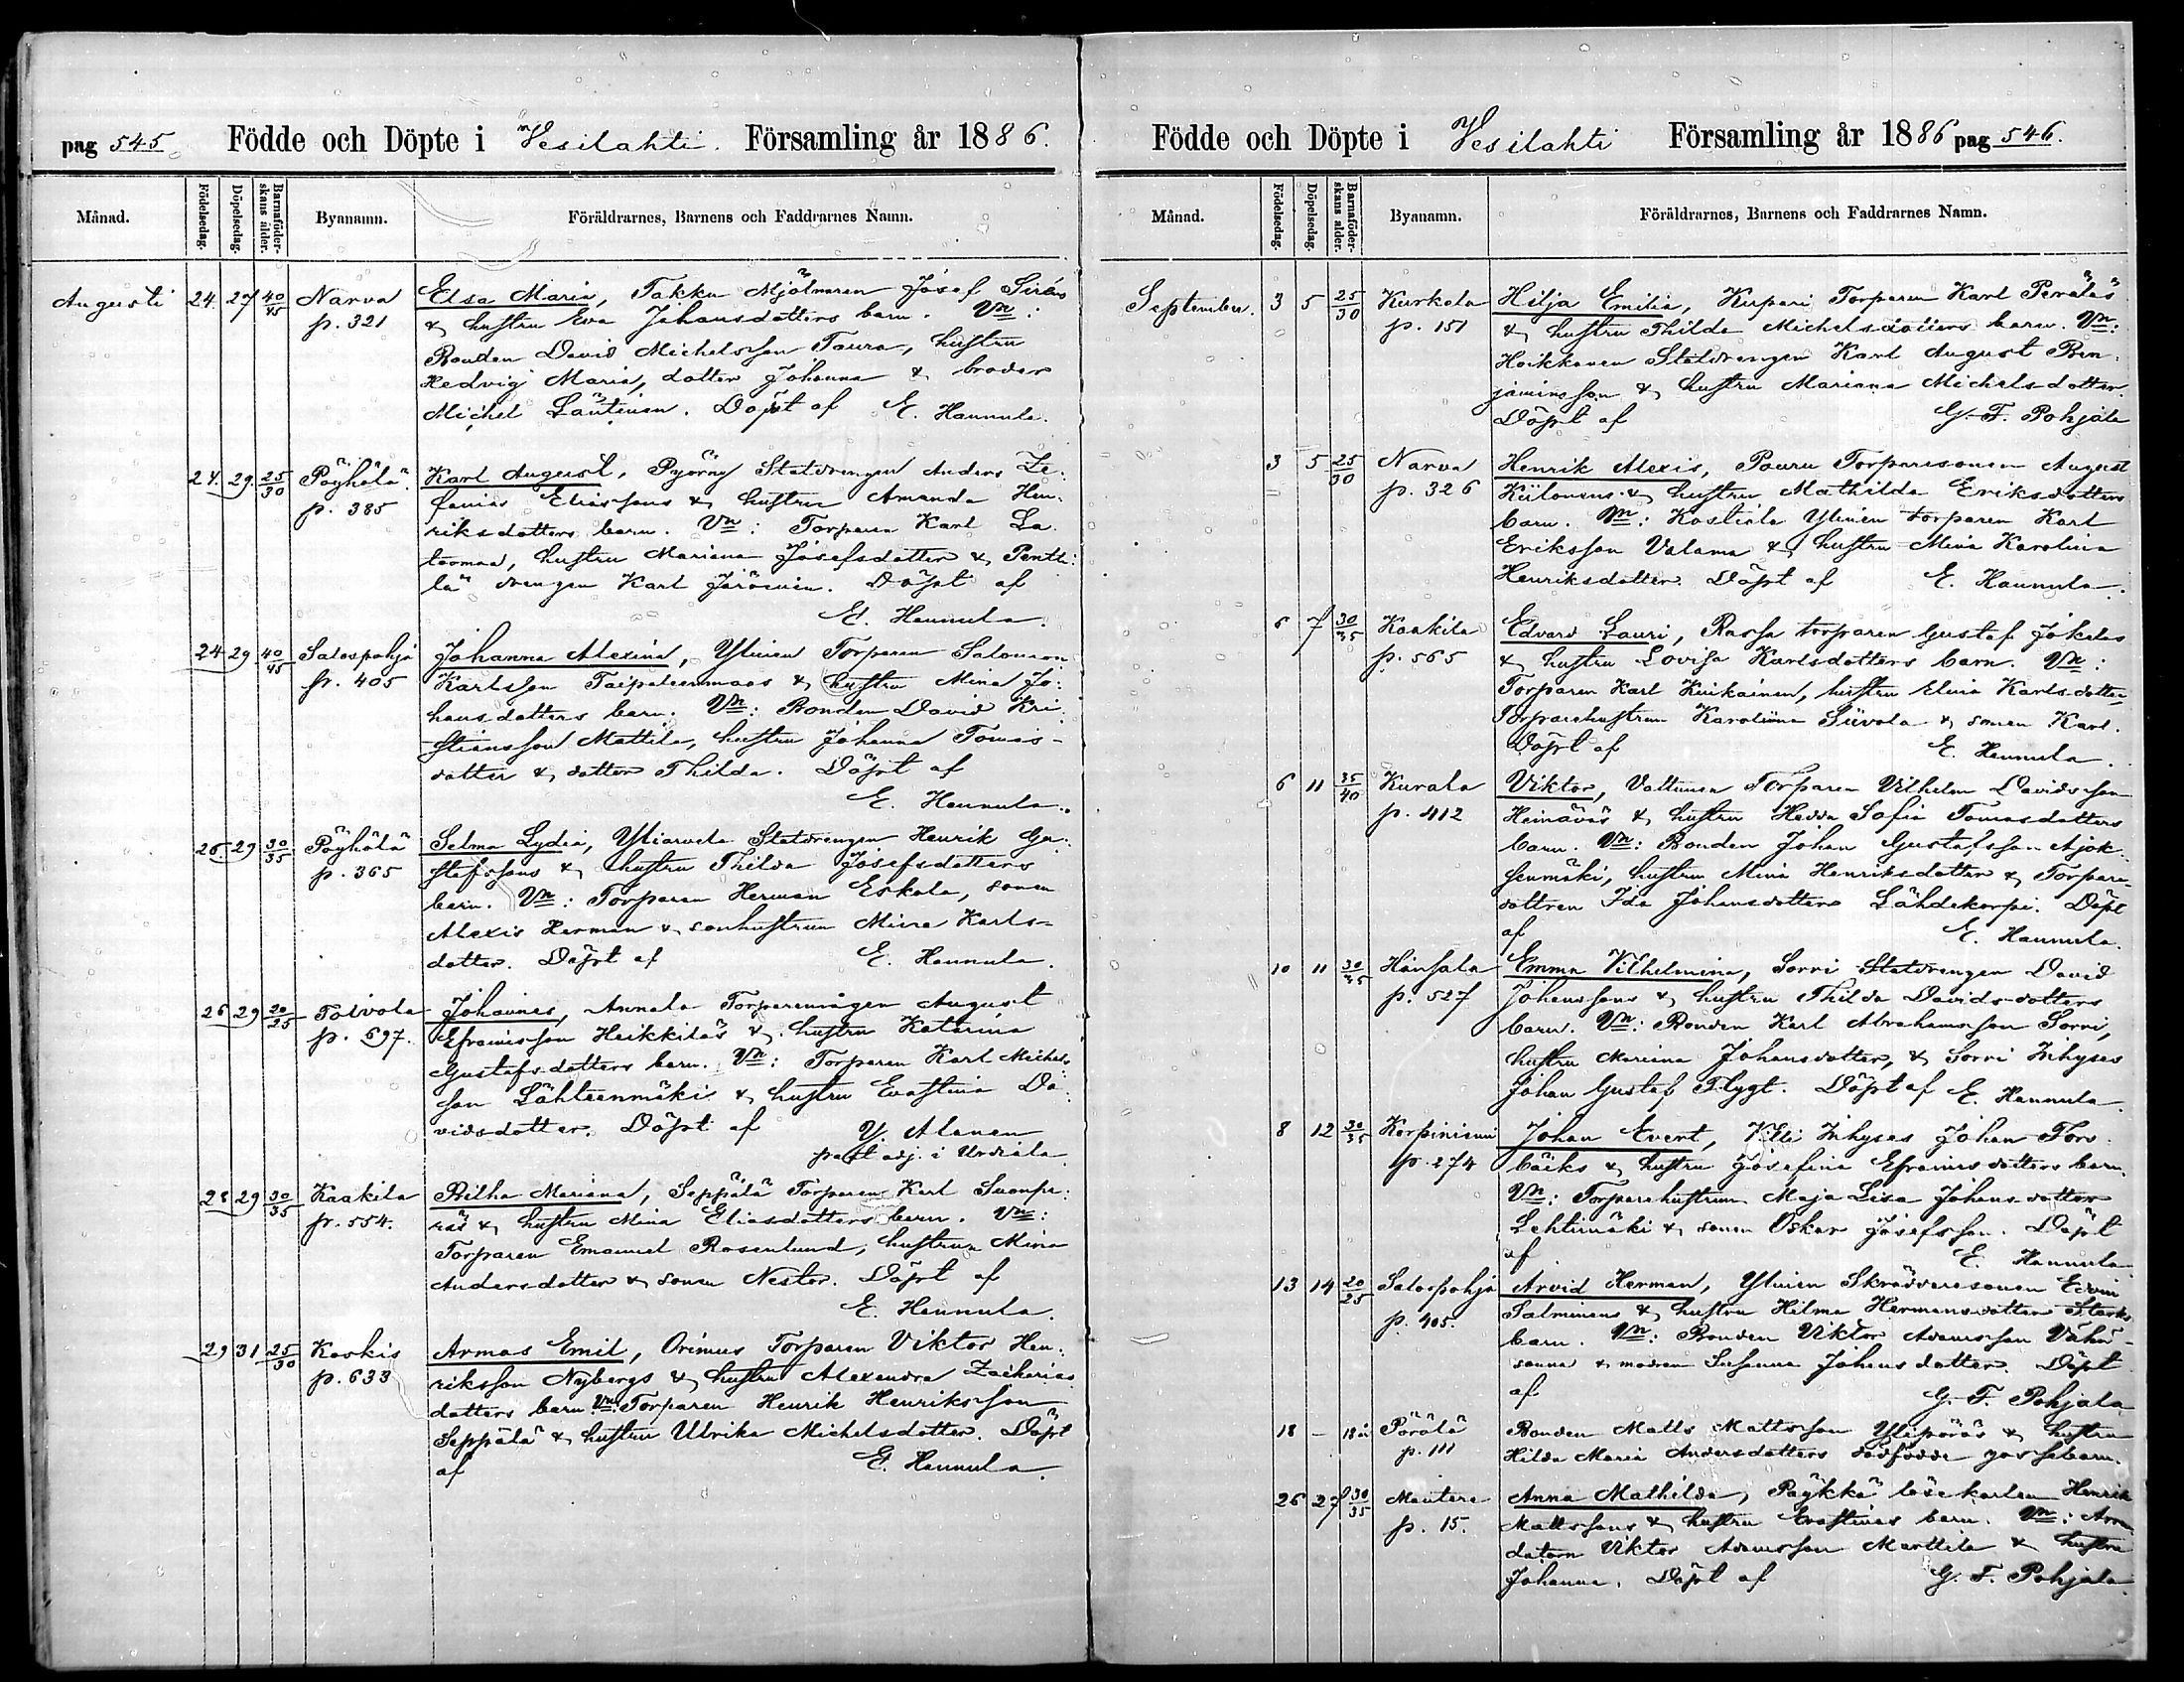 pag 545 Födde och Döpte i Vesilahti. Församling år 1886.
Månad. Födelsedag. Döpelsedag. Barnaföderskans ålder. Byanamn. Föräldrarnes, Barnens och Faddrarnes Namn.
Augusti 24. 27 40/45 Narva Elsa Maria, Takku Mjölnaren Josef Siréns
p. 321 & hustru Eva Johansdotters barn. Vn:
Bonden David Michelsson Taura, hustru
Hedvig Maria, dotter Johanna & broder
Michel Lautinen. Döpt af E. Hannula.
24. 29. 25/30 Pöyhölä. Karl August, Pyörny Statdrengen Anders Ze-
p. 385 fanias Eliassons & hustru Amanda Hen-
riksdotters barn. Vn: Torparen Karl La-
toomaa, hustru Mariana Josefsdotter & Pentti-
lä drengen Karl Järvinen. Döpt af
E. Hannula.
24 29 40/45 Salospohja Johanna Alexina, Ylinen Torparen Salomon
p. 405 Karlsson Taipaleenmaas & hustru Mina Jo-
hansdotters barn. Vn: Bonden David Kri-
stiansson Mattila, hustru Johanna Tomas-
dotter & dotter Thilda. Döpt af
E. Hannula.
26. 29 30/35 Pöyhölä Selma Lydia, Yliarvela Statdrengen Henrik Gu-
p. 365 stafssons & hustru Thilda Josefsdotters
barn. Vn: Torparen Herman Eskola, sonen
Alexis Herman & sonhustrun Mina Karls-
dotter. Döpt af E. Hannula.
26 29 20/25 Toivola Johannes, Annala Torparemågen August
p. 697. Efraimsson Heikkiläs & hustru Katarina
Gustafsdotters barn. Vn: Torparen Karl Michels-
son Lähteenmäki & hustru Evastina Da-
vidsdotter. Döpt af Y. Alanen
past. adj. i Urdiala
28 29 30/35 Kaakila Bitha Mariana, Seppälä Torparen Karl Suonpe-
p. 554. räs & hustru Mina Eliasdotters barn. Vn:
Torparen Emanuel Rosenlund, hustrun Mina
Andersdotter & sonen Nestor. Döpt af
E. Hannula.
29 31 25/30 Koskis Armas Emil, Orimus Torparen Viktor Hen-
p. 633 riksson Nybergs & hustru Alexandra Zacharias
dotters barn Vn: Torparen Henrik Henriksson
Seppälä & hustru Ulrika Michelsdotter. Döpt
af E. Hannula.
Födde och Döpte i Vesilahti Församling år 1886 pag 546.
Månad. Födelsedag. Döpelsedag. Barnaföderskans ålder. Byanamn. Föräldrarnes, Barnens och Faddrarnes Namn.
September. 3 5 25/30 Kurkela Hilja Emilia, Kupari Torparen Karl Peräläs
p. 151 & hustru Thilda Michelsdotters barn. Vn:
Hoikkanen Statdrengen Karl August Ben-
jaminsson & hustru Mariana Michelsdotter.
Döpt af G. F. Pohjala
3 5 25/30 Narva Henrik Alexis, Pauru Torparesonen August
p. 326 Kiilonens & hustru Mathilda Eriksdotters
barn. Vn: Kostiala Ylinen torparen Karl
Eriksson Valama & hustru Mina Karolina
Henriksdotter. Döpt af E. Hannula.
6 7 30/35 Kaakila Edvard Lauri, Rassa torparen Gustaf Jokelas
p. 565 & hustru Lovisa Karlsdotters barn. Vn:
Torparen Karl Kuikainen, hustru Elvia Karlsdotter,
Torparehustrun Karoliina Siivola & sonen Karl.
Döpt af E. Hannula.
6 11 35/40 Kurala Viktor, Valtunen Torparen Vilhelm Davidsson
p. 412 Heinäväs & hustru Hedda Sofia Tomasdotters
barn. Vn: Bonden Johan Gustafsson Ajok-
senmäki, hustru Mina Henriksdotter & Torpare-
dottren Ida Johansdotter Lähdekorpi. Döpt
af E. Hannula.
10 11 30/35 Hänsala Emma Vilhelmina, Sorri Statdrengen David
p. 527 Johanssons & hustru Thilda Davidsdotters
barn. Vn: Bonden Karl Abrahamsson Sorri,
hustru Mariana Johansdotter, & Sorri Inhyses
Johan Gustaf Flygt. Döpt af E. Hannula.
8 12 30/35 Korpiniemi Johan Evert, Villi Inhyses Johan Fors-
p. 274 bäcks & hustru Josefina Efraimsdotters barn.
Vn: Torparehustrun Maja Lisa Johansdotter
Lehtimäki & sonen Oskar Josefsson. Döpt
af E. Hannula
13 14 20/25 Salospohja Arvid Herman, Ylinen Skräddaresonen Edvin
p. 405. Salminens & hustru Hilma Hermansdotter Starks
barn. Vn: Bonden Viktor Adamsson Vähä-
sanna & modren Susanna Johansdotter. Döpt
af G. F. Pohjala
18 – 18 år Pörölä Bonden Matts Mattsson Ylipöräs & hustru
p. 111 Hilda Maria Andersdotters dödfödde gossebarn.
26 27 30/35 Mantere Anna Mathilda, Päykkä lösekarlen Henrik
p. 15. Mattssons & hustru Evastinas barn. Vn: Arren-
datorn Viktor Adamsson Marttila & hustru
Johanna. Döpt af G. F. Pohjala.